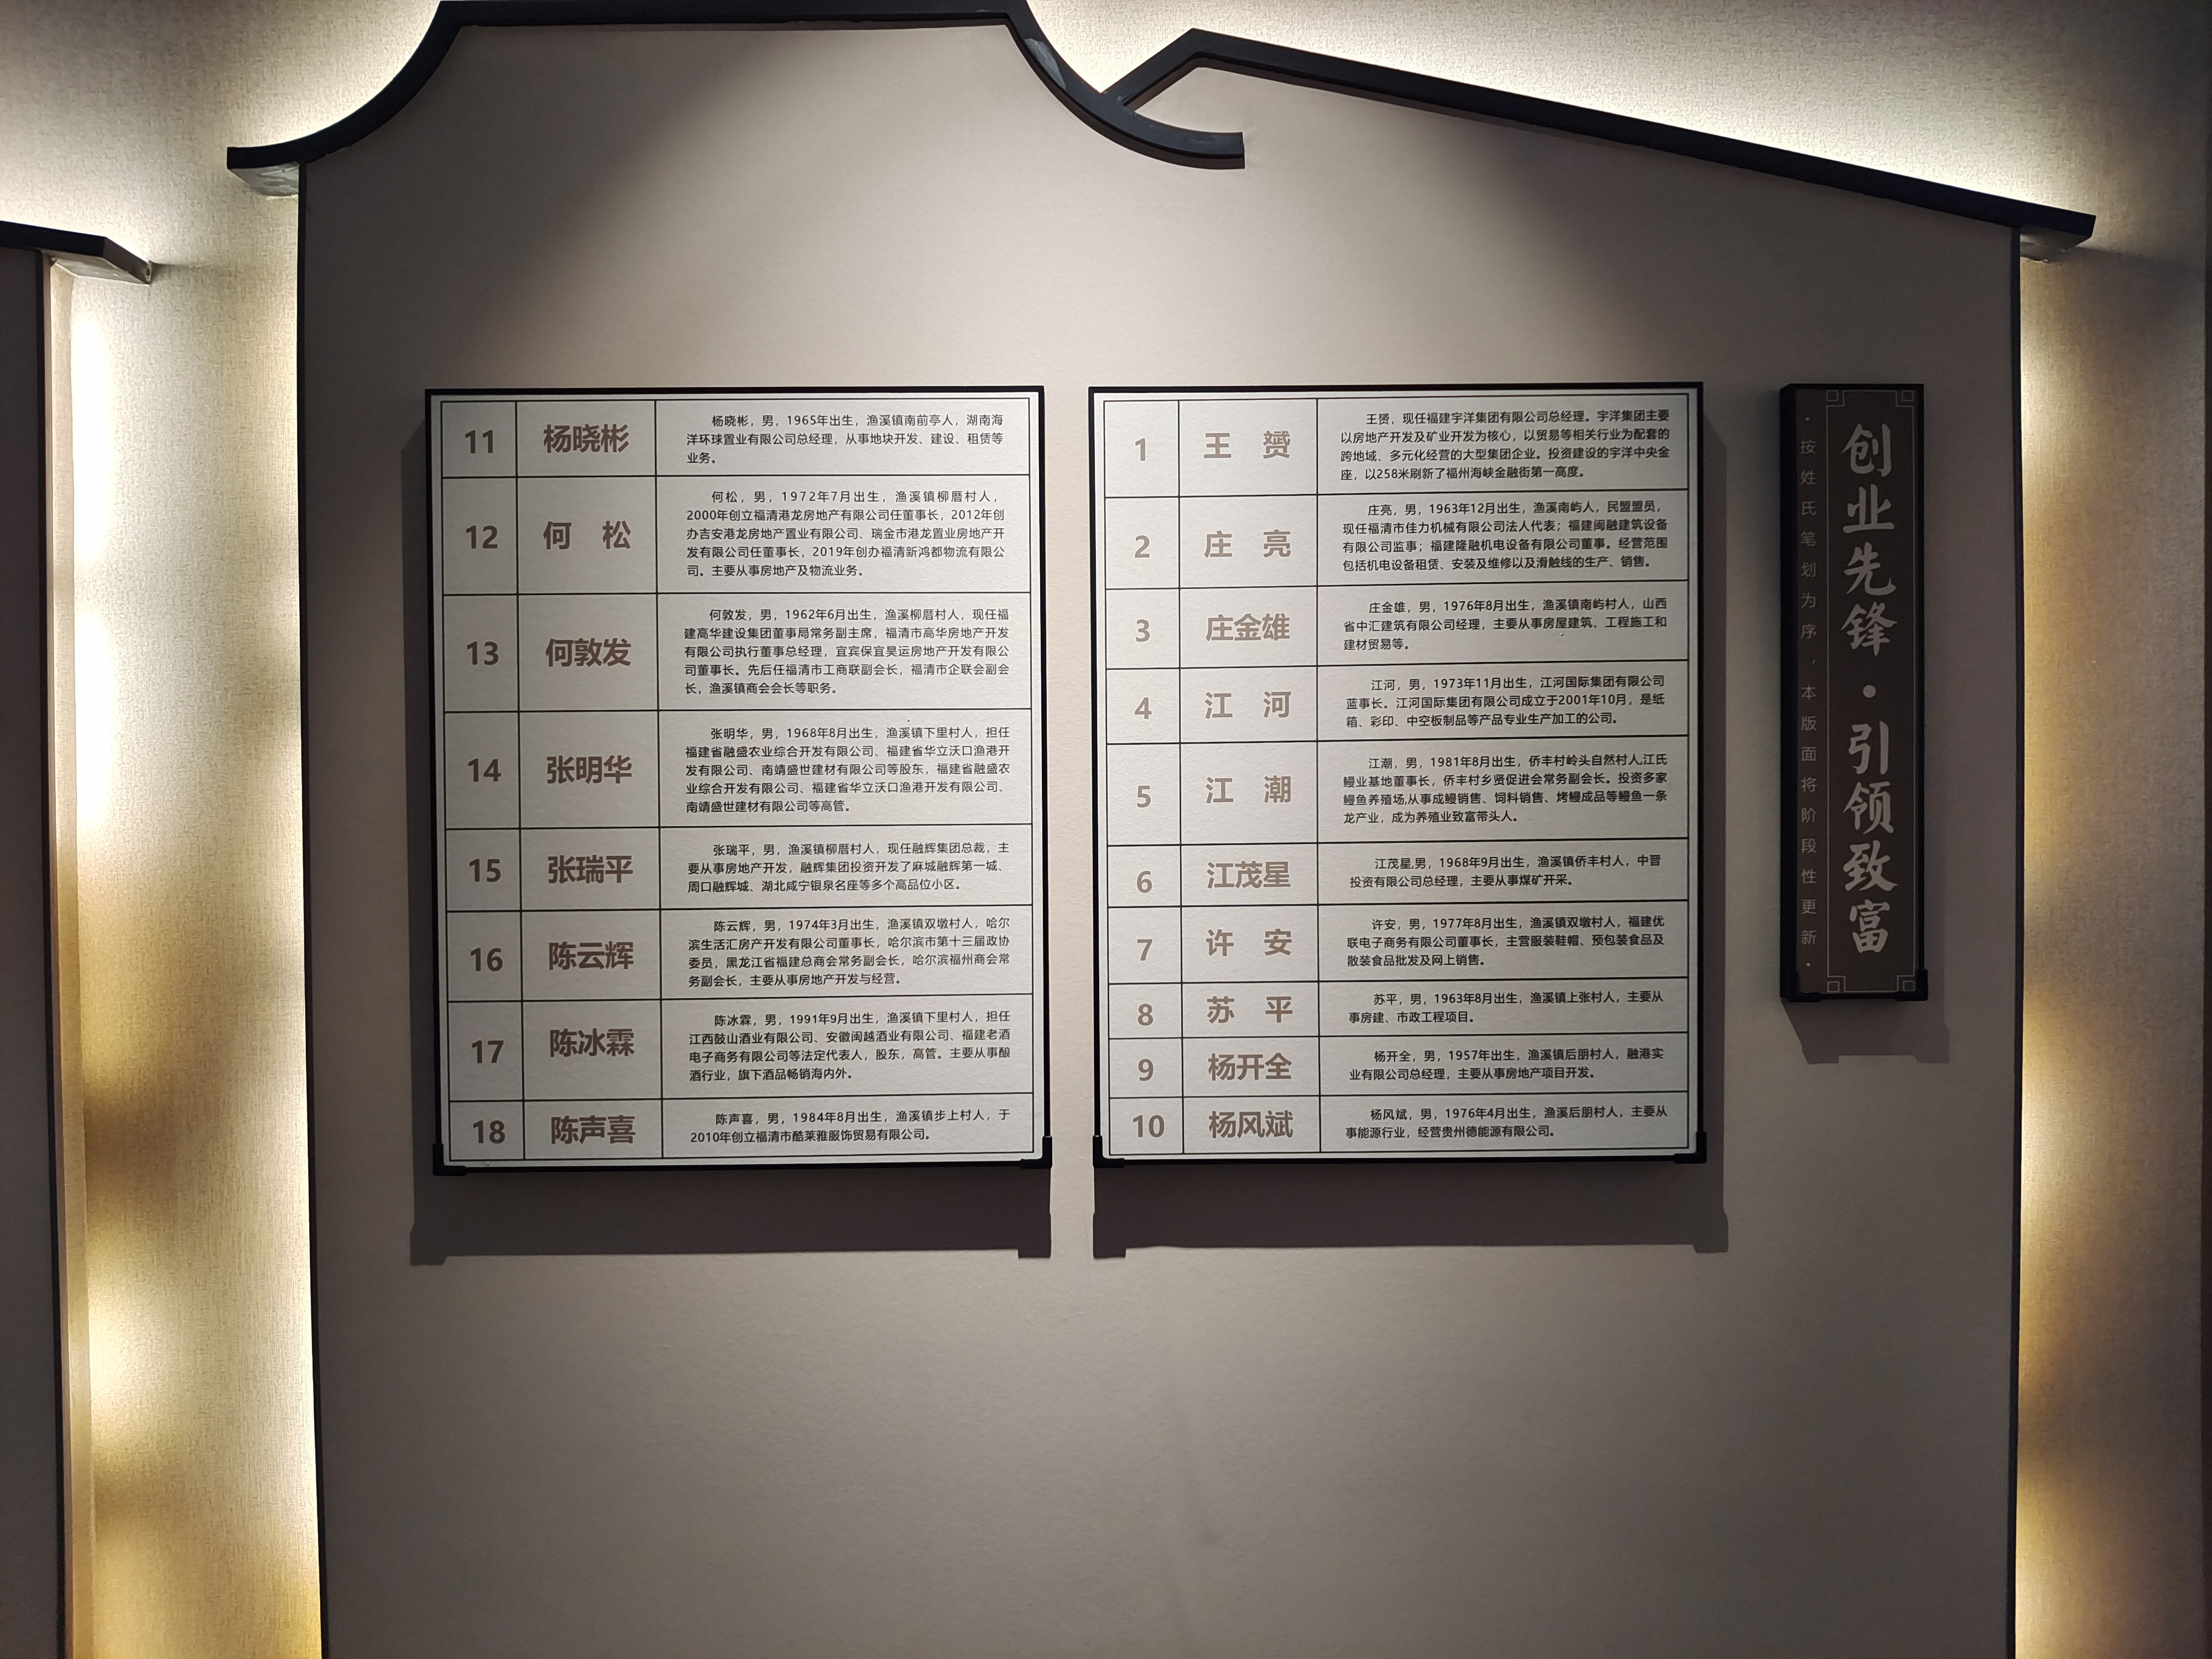 创业先锋·引领致富
·按姓氏笔划为序，本版面将阶段性更新·
1
王 赟
王赟，现任福建宇洋集团有限公司总经理。宇洋集团主要
以房地产开发及矿业开发为核心，以贸易等相关行业为配套的
跨地域、多元化经营的大型集团企业。投资建设的宇洋中央金
座，以258米刷新了福州海峡金融街第一高度。
2
庄 亮
庄亮，男，1963年12月出生，渔溪南屿人，民盟盟员，
现任福清市佳力机械有限公司法人代表；福建闽融建筑设备
有限公司监事；福建隆融机电设备有限公司董事。经营范围
包括机电设备租赁、安装及维修以及滑触线的生产、销售。
3
庄金雄
庄金雄，男，1976年8月出生，渔溪镇南屿村人，山西
省中汇建筑有限公司经理，主要从事房屋建筑、工程施工和
建材贸易等。
4
江 河
江河，男，1973年11月出生，江河国际集团有限公司
蓝事长。江河国际集团有限公司成立于2001年10月，是纸
箱、彩印、中空板制品等产品专业生产加工的公司。
5
江 潮
江潮，男，1981年8月出生，侨丰村岭头自然村人,江氏
鳗业基地董事长，侨丰村乡贤促进会常务副会长。投资多家
鳗鱼养殖场,从事成鳗销售、饲料销售、烤鳗成品等鳗鱼一条
龙产业，成为养殖业致富带头人。
6
江茂星
江茂星,男，1968年9月出生，渔溪镇侨丰村人，中晋
投资有限公司总经理，主要从事煤矿开采。
7
许 安
许安，男，1977年8月出生，渔溪镇双墩村人，福建优
联电子商务有限公司董事长，主营服装鞋帽、预包装食品及
散装食品批发及网上销售。
8
苏 平
苏平，男，1963年8月出生，渔溪镇上张村人，主要从
事房建、市政工程项目。
9
杨开全
杨开全，男，1957年出生，渔溪镇后朋村人，融港实
业有限公司总经理，主要从事房地产项目开发。
10
杨风斌
杨风斌，男，1976年4月出生，渔溪后朋村人，主要从
事能源行业，经营贵州德能源有限公司。
11
杨晓彬
杨晓彬，男，1965年出生，渔溪镇南前亭人，湖南海
洋环球置业有限公司总经理，从事地块开发、建设、租赁等
业务。
12
何 松
何松，男，1972年7月出生，渔溪镇柳厝村人，
2000年创立福清港龙房地产有限公司任董事长，2012年创
办吉安港龙房地产置业有限公司、瑞金市港龙置业房地产开
发有限公司任董事长，2019年创办福清新鸿都物流有限公
司。主要从事房地产及物流业务。
13
何敦发
何敦发，男，1962年6月出生，渔溪柳厝村人，现任福
建高华建设集团董事局常务副主席，福清市高华房地产开发
有限公司执行董事总经理，宜宾保宜昊运房地产开发有限公
司董事长。先后任福清市工商联副会长，福清市企联会副会
长，渔溪镇商会会长等职务。
14
张明华
张明华，男，1968年8月出生，渔溪镇下里村人，担任
福建省融盛农业综合开发有限公司、福建省华立沃口渔港开
发有限公司、南靖盛世建材有限公司等股东，福建省融盛农
业综合开发有限公司、福建省华立沃口渔港开发有限公司、
南靖盛世建材有限公司等高管。
15
张瑞平
张瑞平，男，渔溪镇柳厝村人，现任融辉集团总裁，主
要从事房地产开发，融辉集团投资开发了麻城融辉第一城、
周口融辉城、湖北咸宁银泉名座等多个高品位小区。
16
陈云辉
陈云辉，男，1974年3月出生，渔溪镇双墩村人，哈尔
滨生活汇房产开发有限公司董事长，哈尔滨市第十三届政协
委员，黑龙江省福建总商会常务副会长，哈尔滨福州商会常
务副会长，主要从事房地产开发与经营。
17
陈冰霖
陈冰霖，男，1991年9月出生，渔溪镇下里村人，担任
江西鼓山酒业有限公司、安徽闽越酒业有限公司、福建老酒
电子商务有限公司等法定代表人，股东，高管。主要从事酿
酒行业，旗下酒品畅销海内外。
18
陈声喜
陈声喜，男，1984年8月出生，渔溪镇步上村人，于
2010年创立福清市酷莱雅服饰贸易有限公司。